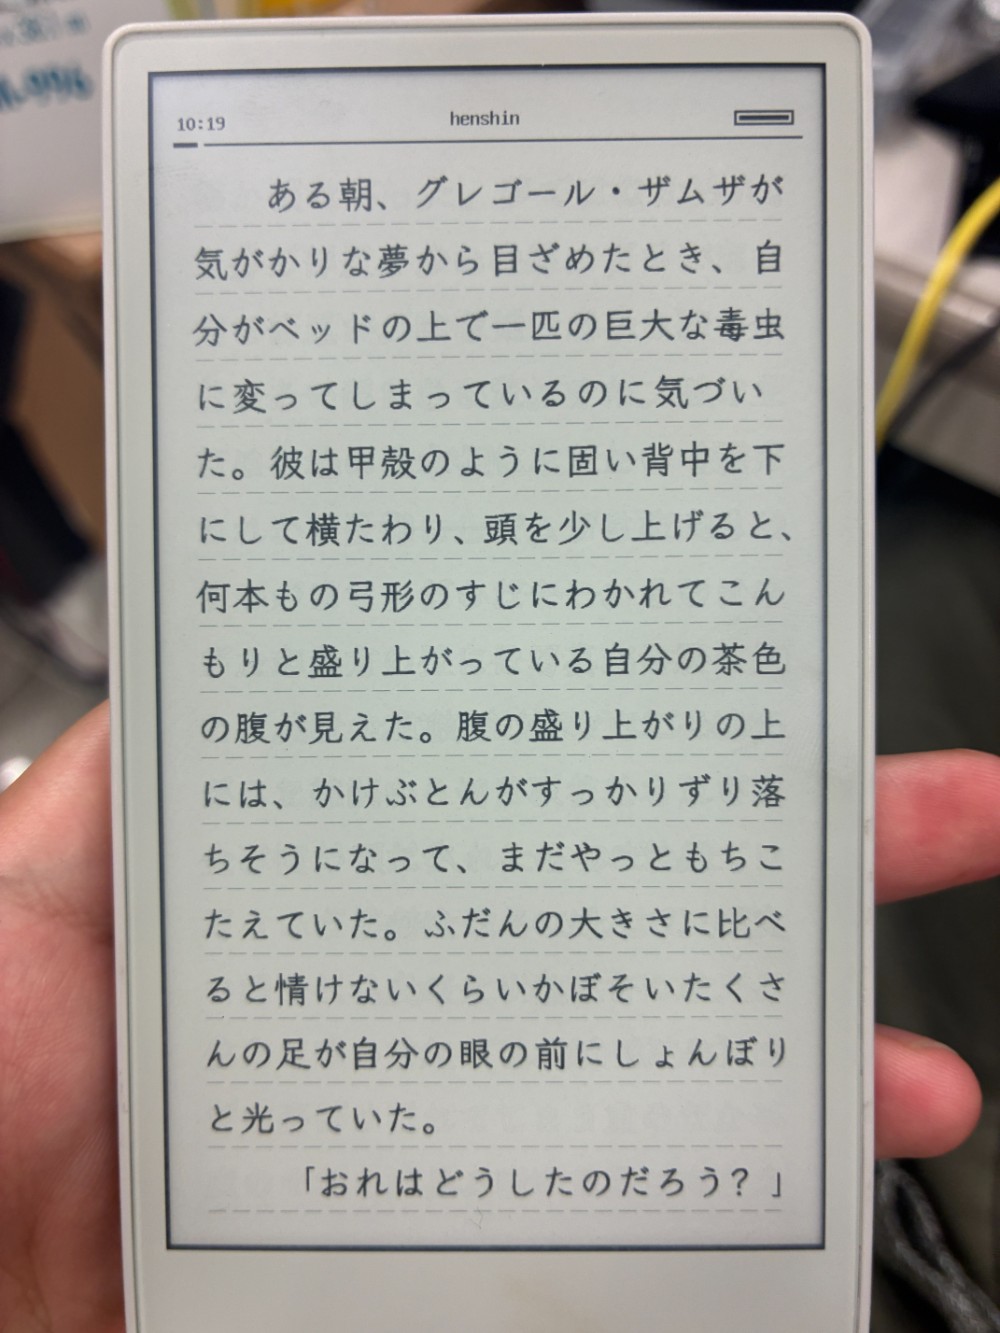 10:19 henshin
ある朝、グレゴール・ザムザが
気がかりな夢から目ざめたとき、自
分がベッドの上で一匹の巨大な毒虫
に変ってしまっているのに気づい
た。彼は甲殻のように固い背中を下
にして横たわり、頭を少し上げると、
何本もの弓形のすじにわかれてこん
もりと盛り上がっている自分の茶色
の腹が見えた。腹の盛り上がりの上
には、かけぶとんがすっかりずり落
ちそうになって、まだやっともちこ
たえていた。ふだんの大きさに比べ
ると情けないくらいかぼそいたくさ
んの足が自分の眼の前にしょんぼり
と光っていた。
「おれはどうしたのだろう？」